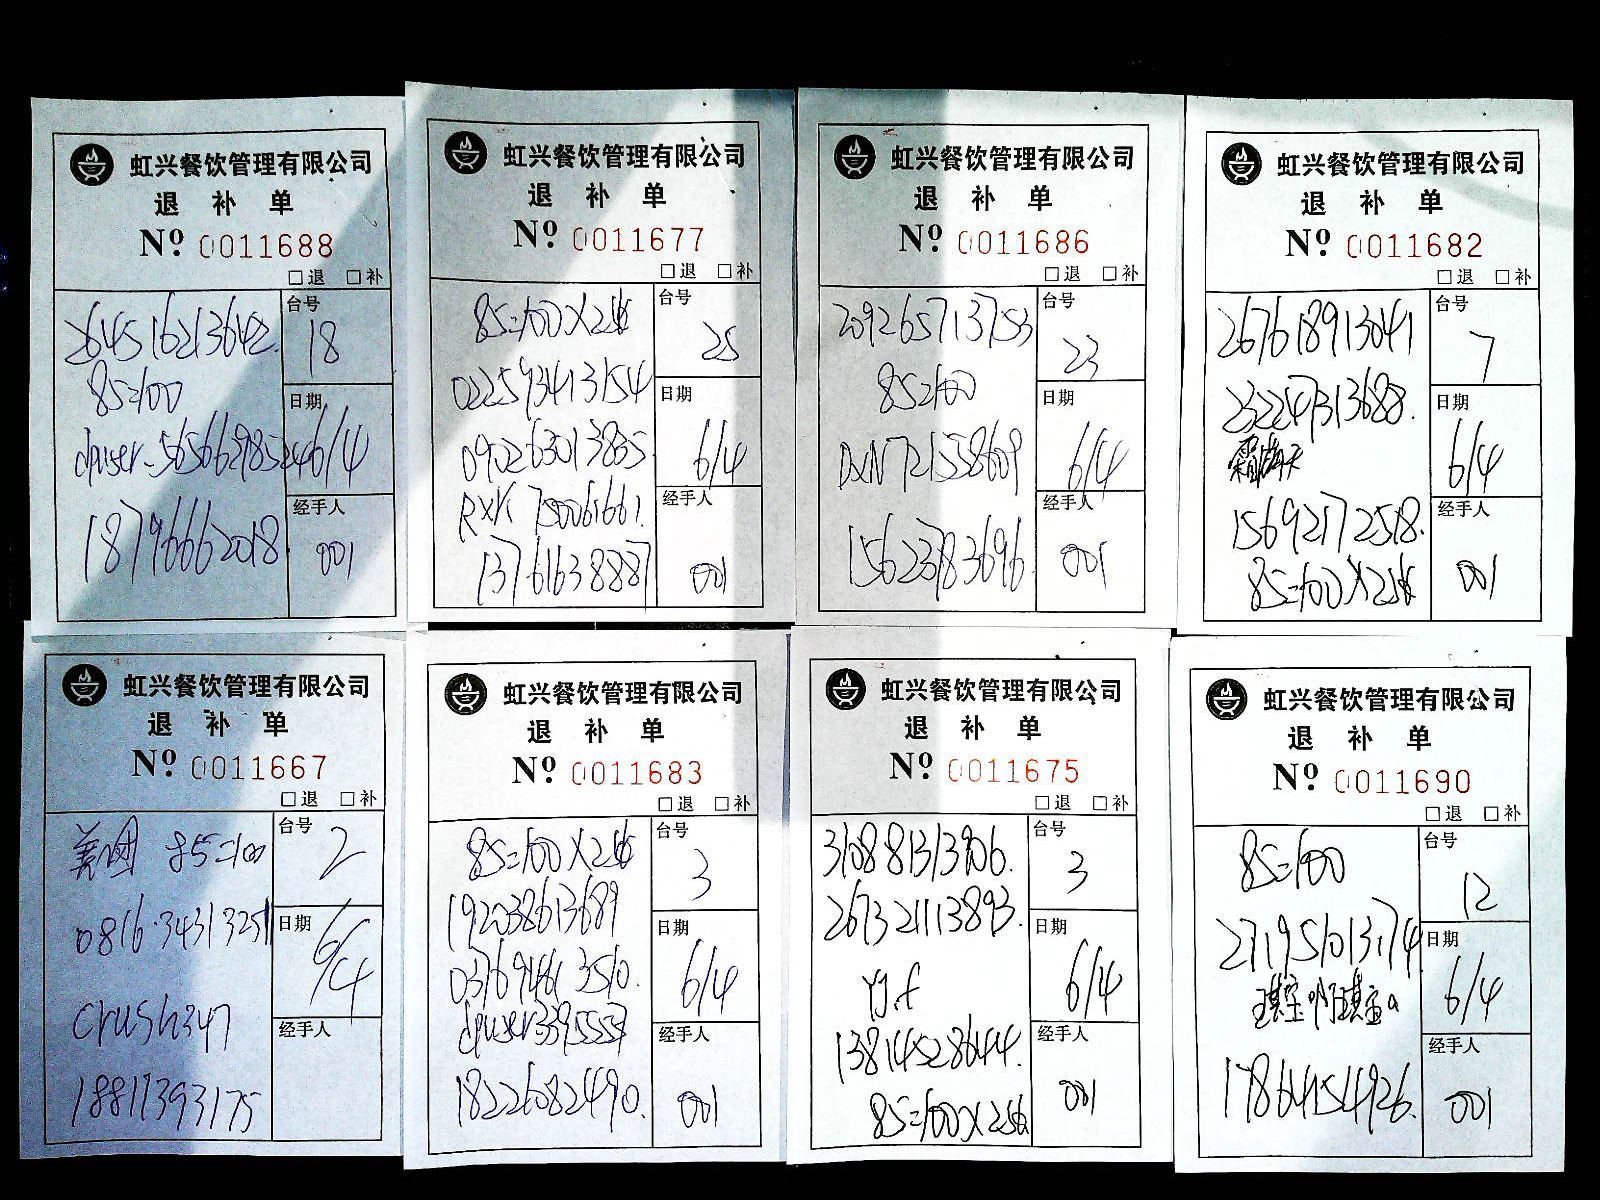 虹兴餐饮管理有限公司
退 补 单
Nº 0011688
□退 □补
264516213642.
85=100
dpuser-56566298524
18796662018
台号
18
日期
6/4
经手人
001
虹兴餐饮管理有限公司
退 补 单
Nº 0011677
□退 □补
85=100X2张
022593413154
090263013835
RXK 750061661.
13761638887
台号
25
日期
6/4
经手人
001
虹兴餐饮管理有限公司
退 补 单
Nº 0011686
□退 □补
209265713753
85=100
DXN721558609
15623783696.
台号
23
日期
6/4
经手人
001
虹兴餐饮管理有限公司
退 补 单
Nº 0011682
□退 □补
267618913041
232247313688.
15692172518.
85=100X2张
台号
7
日期
6/4
经手人
001
虹兴餐饮管理有限公司
退 补 单
Nº 0011667
□退 □补
美团 85=100
0816.34313251
crush347
18811393175
台号
2
日期
6/4
经手人
虹兴餐饮管理有限公司
退 补 单
Nº 0011683
□退 □补
85=100X2张
192038613689
037694613510.
dpuser3395553
18226082490.
台号
3
日期
6/4
经手人
001
虹兴餐饮管理有限公司
退 补 单
Nº 0011675
□退 □补
310881313906.
267321113893.
YJ.f
13814528644.
85=100X2张
台号
3
日期
6/4
经手人
001
虹兴餐饮管理有限公司
退 补 单
Nº 0011690
□退 □补
85=100
271951013174
琪宝啊琪宝a
17864154926.
台号
12
日期
6/4
经手人
001